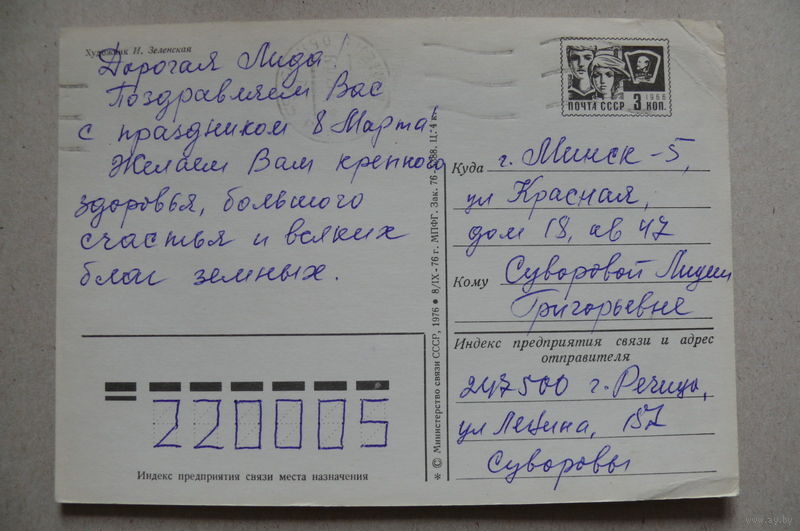 Художник И. Зеленская
Дорогая Лида!
Поздравляем Вас
с праздником 8 Марта
Желаем Вам крепкого
здоровья, большого
счастья и всяких
благ земных.
ПОЧТА СССР 3 КОП.
1966
Куда г. Минск-5,
ул Красная,
дом 18, кв 47
Кому Суворовой Лидии
Григорьевне
Индекс предприятия связи и адрес
отправителя
247500 г. Речица,
ул Ленина,
Суворовы
220005
Индекс предприятия связи места назначения
* © Министерство связи СССР, 1976 ● 8/IX-76 г. МПФГ. Зак. 76- 088. Ц. 4 к.
www.ay.by